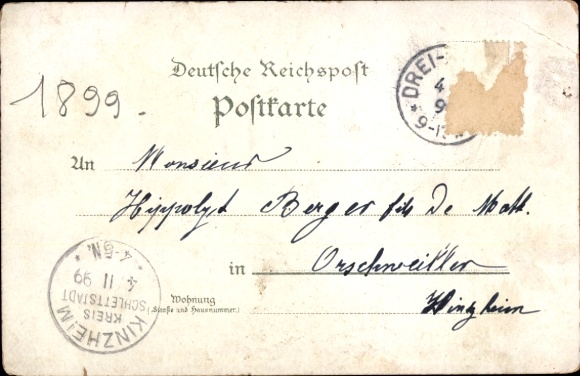 Deutsche Reichspost
Postkarte
1899.
DREI-
4
9
9-1
An Monsieur
Hippolyt Berger fils De Matt.
in Orschweiller
Kinzheim
Wohnung
(Straße und Hausnummer.)
KINZHEIM
KREIS
SCHLETTSTADT
4. 11 99
* 4-5N. *